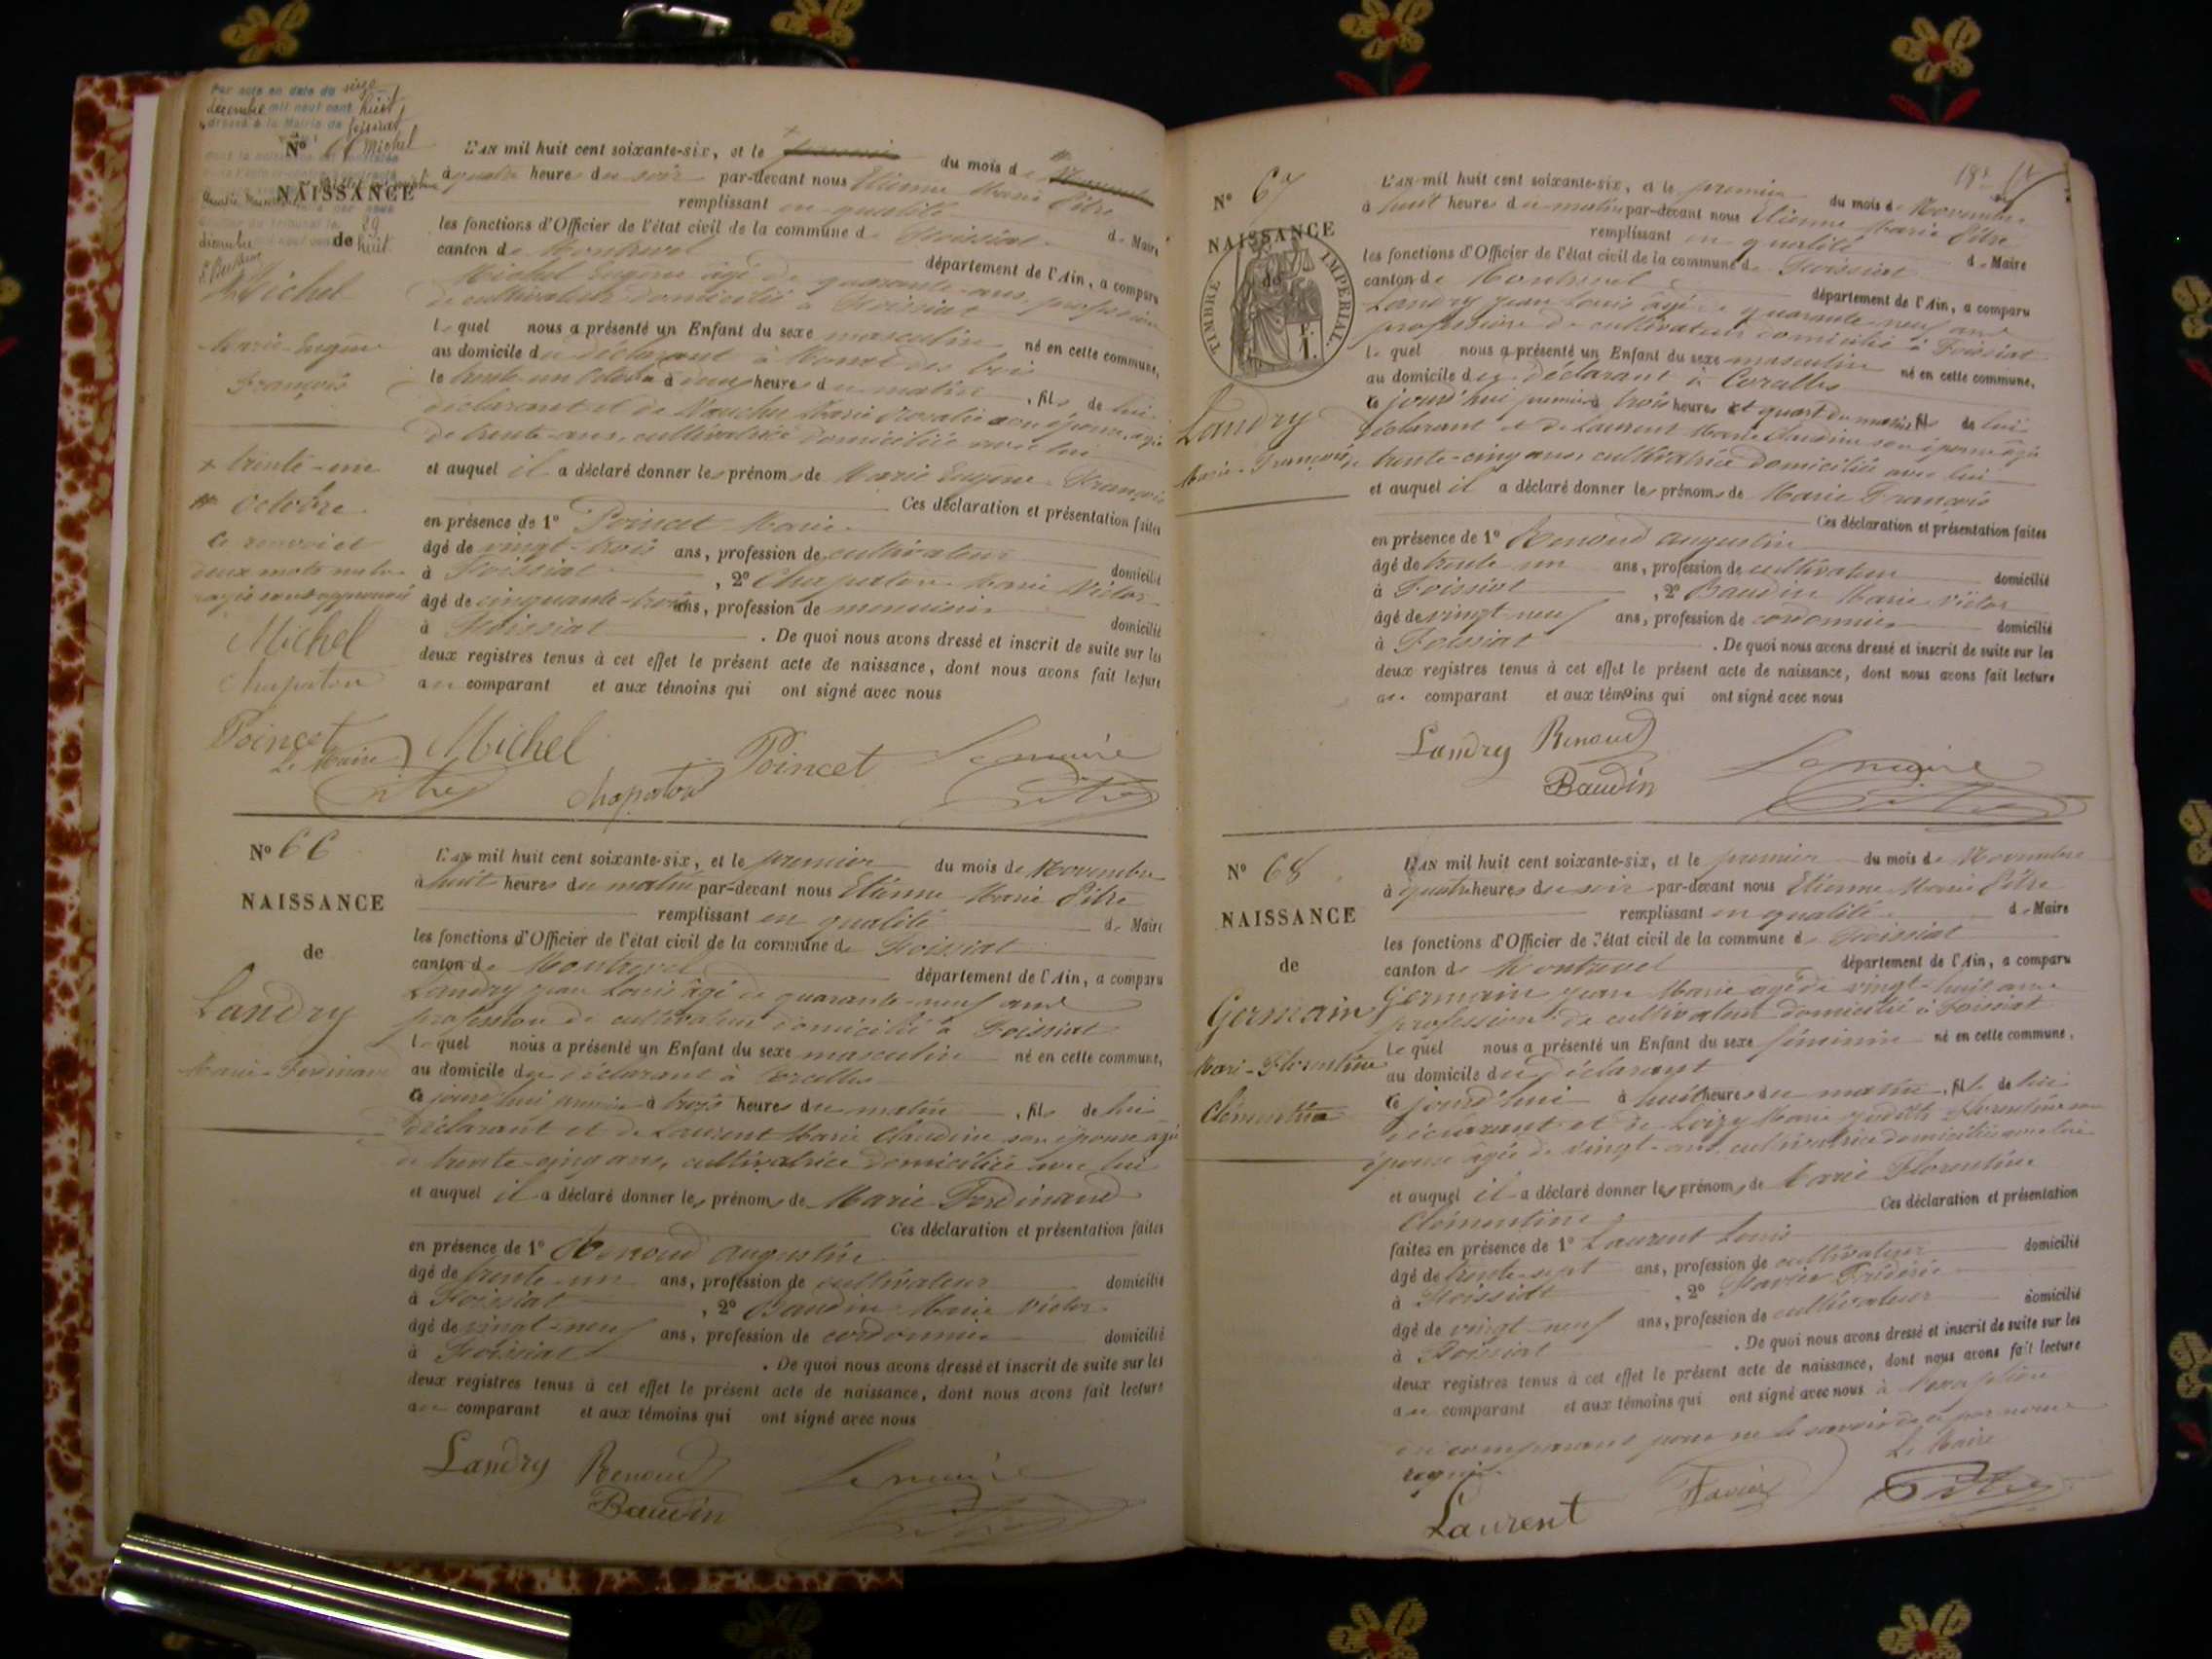 Par acte en date du seize
décembre mil neuf cent huit
dressé à la Mairie de Foissiat
N°
NAISSANCE
de
décembre huit
Michel
Marie Eugène
François
+ trente-un
# octobre
Ce renvoi et
deux mots
Michel
Chapaton
Poincet
Le Maire
Pitre
L'AN mil huit cent soixante-six, et le du mois de
à quatre heures du soir par-devant nous Etienne Marie Pitre
remplissant en qualité de Maire
les fonctions d'Officier de l'état civil de la commune de Foissiat
canton de Montrevel département de l'Ain, a comparu
Michel Eugène âgé de quarante ans, profession
de cultivateur domicilié à Foissiat
lequel nous a présenté un Enfant du sexe masculin né en cette commune,
au domicile du déclarant à
le trente-un Octobre à heures du matin, fils de lui
déclarant et de Marie Rosalie son épouse, âgée
de trente ans, cultivatrice domiciliée avec lui
et auquel il a déclaré donner les prénoms de Marie Eugène François
Ces déclaration et présentation faites
en présence de 1° Poincet Marie
âgé de vingt-trois ans, profession de cultivateur domicilié
à Foissiat, 2° Chapaton Marie Victor
âgé de cinquante-trois ans, profession de menuisier domicilié
à Foissiat. De quoi nous avons dressé et inscrit de suite sur les
deux registres tenus à cet effet le présent acte de naissance, dont nous avons fait lecture
au comparant et aux témoins qui ont signé avec nous
Michel Chapaton Poincet Le maire
Pitre
N° 66
NAISSANCE
de
Landry
Marie-Ferdinand
L'AN mil huit cent soixante-six, et le premier du mois de Novembre
à huit heures du matin par-devant nous Etienne Marie Pitre
remplissant en qualité de Maire
les fonctions d'Officier de l'état civil de la commune de Foissiat
canton de Montrevel département de l'Ain, a comparu
Landry Jean Louis âgé de quarante-neuf ans
profession de cultivateur domicilié à Foissiat
lequel nous a présenté un Enfant du sexe masculin né en cette commune,
au domicile du déclarant à
ce jourd'hui premier à trois heures du matin, fils de lui
déclarant et de Laurent Marie Claudine son épouse âgée
de trente-cinq ans, cultivatrice domiciliée avec lui
et auquel il a déclaré donner les prénoms de Marie Ferdinand
Ces déclaration et présentation faites
en présence de 1° Renoud Augustin
âgé de trente-un ans, profession de cultivateur domicilié
à Foissiat, 2° Baudin Marie Victor
âgé de vingt-neuf ans, profession de cordonnier domicilié
à Foissiat. De quoi nous avons dressé et inscrit de suite sur les
deux registres tenus à cet effet le présent acte de naissance, dont nous avons fait lecture
au comparant et aux témoins qui ont signé avec nous
Landry Renoud Le maire
Baudin Pitre
N° 67
NAISSANCE
de
TIMBRE IMPÉRIAL
Landry
Marie-François
L'AN mil huit cent soixante-six, et le premier du mois de Novembre
à huit heures du matin par-devant nous Etienne Marie Pitre
remplissant en qualité de Maire
les fonctions d'Officier de l'état civil de la commune de Foissiat
canton de Montrevel département de l'Ain, a comparu
Landry Jean Louis âgé de quarante-neuf ans
profession de cultivateur domicilié à Foissiat
lequel nous a présenté un Enfant du sexe masculin né en cette commune,
au domicile du déclarant à
ce jourd'hui premier à trois heures et quart du matin, fils de lui
déclarant et de Laurent Marie Claudine son épouse âgée
de trente-cinq ans cultivatrice domiciliée avec lui
et auquel il a déclaré donner les prénoms de Marie François
Ces déclaration et présentation faites
en présence de 1° Renoud Augustin
âgé de trente un ans, profession de cultivateur domicilié
à Foissiat, 2° Baudin Marie Victor
âgé de vingt-neuf ans, profession de cordonnier domicilié
à Foissiat. De quoi nous avons dressé et inscrit de suite sur les
deux registres tenus à cet effet le présent acte de naissance, dont nous avons fait lecture
au comparant et aux témoins qui ont signé avec nous
Landry Renoud Le maire
Baudin Pitre
N° 68
NAISSANCE
de
Germain
Marie-Florentine
Clémentine
L'AN mil huit cent soixante-six, et le premier du mois de Novembre
à quatre heures du soir par-devant nous Etienne Marie Pitre
remplissant en qualité de Maire
les fonctions d'Officier de l'état civil de la commune de Foissiat
canton de Montrevel département de l'Ain, a comparu
Germain Jean Marie âgé de vingt-huit ans
profession de cultivateur domicilié à Foissiat
lequel nous a présenté un Enfant du sexe féminin né en cette commune,
au domicile du déclarant
ce jourd'hui à huit heures du matin, fille de lui
déclarant et de Loizy Marie Florentine son
épouse âgée de vingt ans, cultivatrice domiciliée avec lui
et auquel il a déclaré donner les prénoms de Marie Florentine
Clémentine Ces déclaration et présentation
faites en présence de 1° Laurent Louis
âgé de trente-sept ans, profession de cultivateur domicilié
à Foissiat, 2° Favier Frédéric
âgé de vingt-neuf ans, profession de cultivateur domicilié
à Foissiat. De quoi nous avons dressé et inscrit de suite sur les
deux registres tenus à cet effet le présent acte de naissance, dont nous avons fait lecture
au comparant et aux témoins qui ont signé avec nous à l'exception
du comparant pour ne le savoir de ce par nous
requis Le Maire
Laurent Favier Pitre